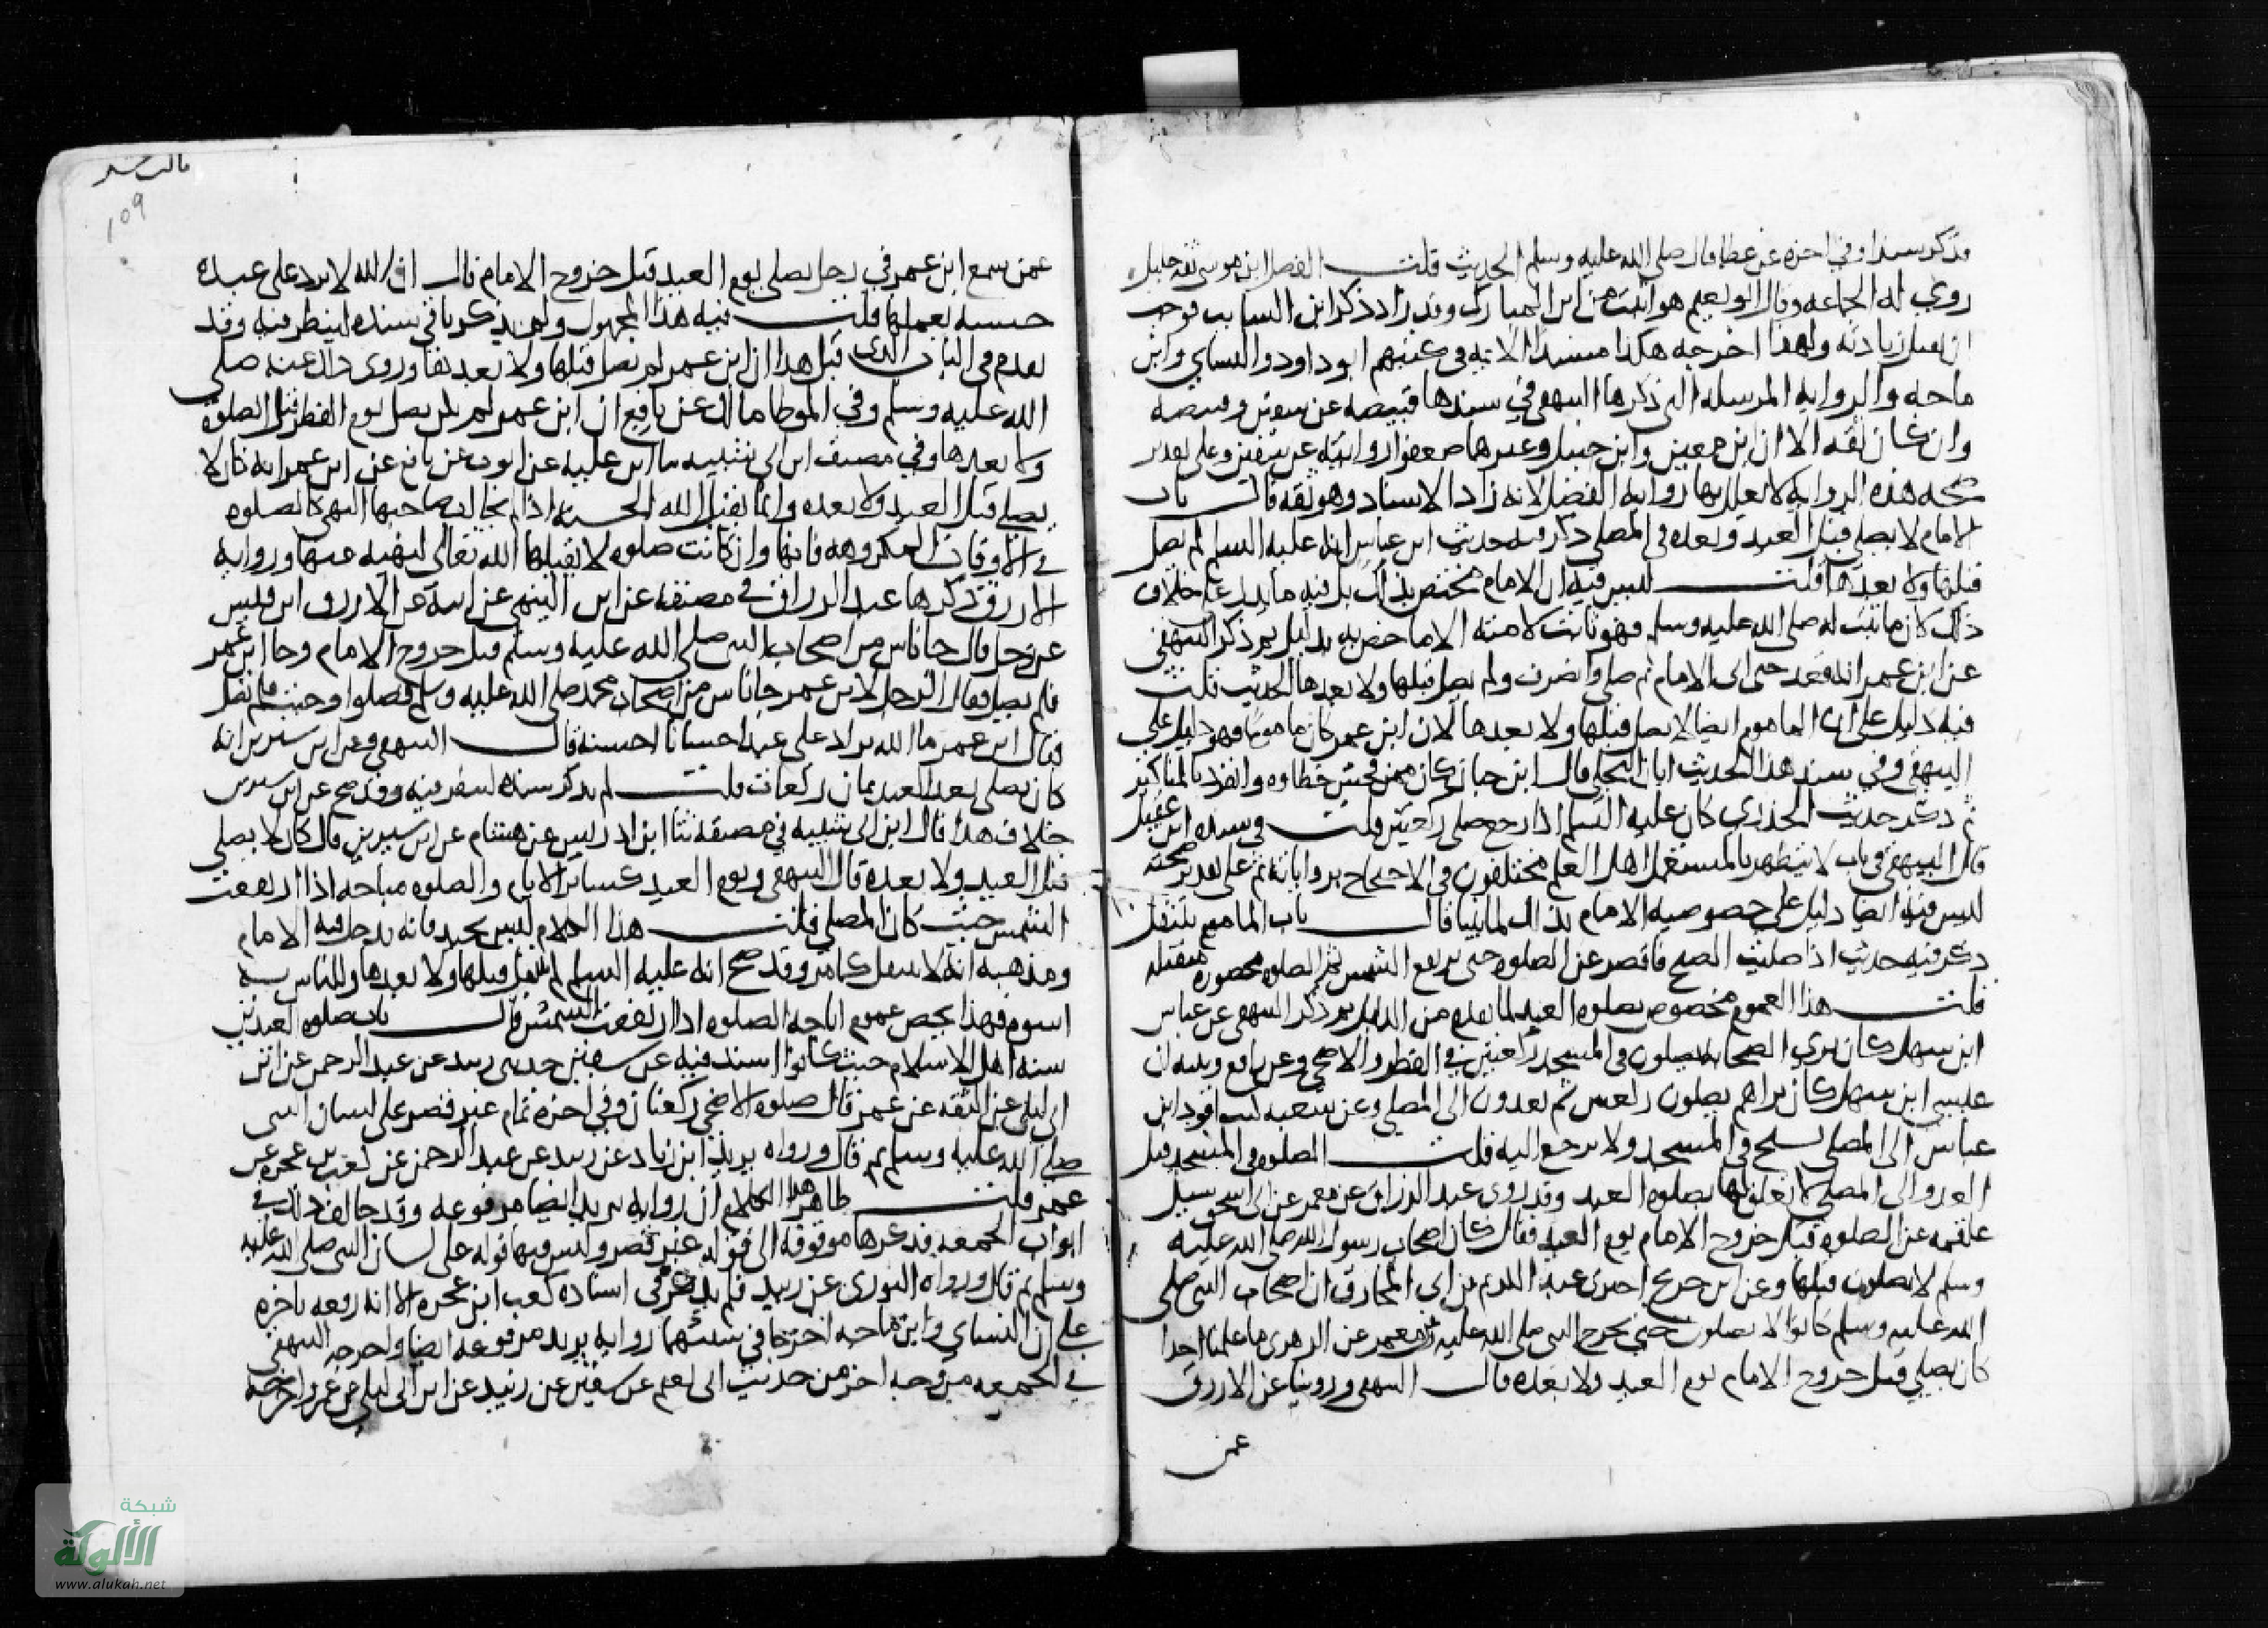 فذكر سندا وفي اخره عن عطا قال صلى الله عليه وسلم الحديث قلت الفضل ابن موسى ثقه جليل
روى له الجماعه وقال ابو نعيم هو اثبت من ابن المبارك وقد زاد ذكر ابن السايب فوجب
ان تقبل زيادته ولهذا اخرجه هكذا مسندا الايمه في كتبهم ابو داود والنساي وابن
ماجه والروايه المرسله التي ذكرها البيهقي في سندها قبيصه عن سفين وقبيصه
وان كان ثقه الا ان ابن معين وابن حنبل وغيرهما ضعفوا روايته عن سفين وعلى تقدير
صحه هذه الروايه لا تعلل بها روايه الفضل لانه زاد الاسناد وهو ثقه قال باب
الامام لا يصلي قبل العيد وبعده في المصلى ذكر فيه حديث ابن عباس انه عليه السلم لم يصل
قبلها ولا بعدها قلت ليس فيه ان الامام مختص بذلك بل فيه ما يدل على خلاف
ذلك لان ما ثبت له صلى الله عليه وسلم فهو ثابت لامته الا ما خص به بدليل ثم ذكر البيهقي
عن ابن عمر انه قعد حتى اتى الامام ثم صلى وانصرف ولم يصل قبلها ولا بعدها الحديث قلت
فيه دليل على ان الماموم ايضا لا يصل قبلها ولا بعدها لان ابن عمر كان ماموما فهو دليل على
البيهقي وفي سند هذا الحديث ابان البجلي قال ابن حبان كان ممن فحش خطاوه وانفرد بالمناكير
ثم ذكر حديث الخدري كان عليه السلم اذا رجع صلى ركعتين قلت في سنده ابن عقيل
قال البيهقي في باب لا يتطهر بالمستعمل اهل العلم مختلفون في الاحتجاج برواياته ثم على تقدير صحته
ليس فيه ايضا دليل على خصوصيه الامام بذلك لما بينا قال باب الماموم يتنفل
ذكر فيه حديث اذا صليت الصبح فاقصر عن الصلوه حتى ترتفع الشمس ثم الصلوه محضوره متقبله
قلت هذا العموم مخصوص بصلوه العيد لما تقدم من الدليل ثم ذكر البيهقي عن عباس
ابن سهل كان يرى الصحابه يصلون في المسجد ركعتين في الفطر والاضحى وعن رافع وبنيه ان
عباس ابن سهل كان يراهم يصلون ركعتين ثم يغدون الى المصلى وعن شعبه كنت اقود ابن
عباس الى المصلى فيسبح في المسجد ولا يرجع اليه قلت الصلوه في المسجد قبل
الغدو الى المصلى لا تعلق لها بصلوه العيد وقد روى عبد الرزاق عن معمر عن ابي اسحق سيل
علقمه عن الصلوه قبل خروج الامام يوم العيد فقال كان اصحاب رسول الله صلى الله عليه
وسلم لا يصلون قبلها وعن ابن جريج اخبرني عبد الكريم بن ابي المخارق ان اصحاب النبي صلى
الله عليه وسلم كانوا لا يصلون حتى يخرج النبي صلى الله عليه وعن معمر عن الزهري ما علمنا احدا
كان يصلي قبل خروج الامام يوم العيد ولا بعده قال البيهقي وروينا عن الازرق
عمن
109
عمن سمع ابن عمر في رجل يصلي يوم العيد قبل خروج الامام قال ان الله لا يرد على عبده
حسنه يعملها قلت فيه هذا المجهول ولم يذكر باقي سنده لينظر فيه وقد
تقدم في الباب الذي قبل هذا ان ابن عمر لم يصل قبلها ولا بعدها وروى ذلك عنه صلى
الله عليه وسلم وفي الموطا مالك عن نافع ان ابن عمر لم يكن يصل يوم الفطر قبل الصلوه
ولا بعدها وفي مصنف ابن ابي شيبه نا ابن عليه عن ايوب عن نافع عن ابن عمر انه كان لا
يصلي قبل العيد ولا بعده وانما يقبل الله الحسنه اذا لم يخالف صاحبها النهي كالصلوه
في الاوقات المكروهه فانها وان كانت صلوه لا يقبلها الله تعالى لنهيه عنها وروايه
الازرق ذكرها عبد الرزاق في مصنفه عن ابن التيمي عن ابيه عن الازرق ابن قيس
عن رجل قال جا ناس من اصحاب النبي صلى الله عليه وسلم قبل خروج الامام وجا ابن عمر
فلم يصل فقال الرجل لابن عمر جا ناس من اصحاب محمد صلى الله عليه وسلم فصلوا وجيت فلم تصل
فقال ابن عمر ما الله براد على عبد احسانا احسنه قال البيهقي وعن ابن سيرين انه
كان يصلي بعد العيد ثمان ركعات قلت لم يذكر سنده لينظر فيه وقد صح عن ابن سيرين
خلاف هذا قال ابن ابي شيبه في مصنفه ثنا ابن ادريس عن هشام عن ابن سيرين قال كان لا يصلي
قبل العيد ولا بعده قال البيهقي ويوم العيد كساير الايام والصلوه مباحه اذا ارتفعت
الشمس حيث كان المصلي قلت هذا الكلام ليس بجيد فانه يدخل فيه الامام
ومذهبه انه لا يتنفل كما مر وقد صح انه عليه السلم لم يتنفل قبلها ولا بعدها وللناس به
اسوه فهذا يخص عموم اباحه الصلوه اذا ارتفعت الشمس قال باب صلوه العيدين
سنه اهل الاسلام حيث كانوا اسند فيه عن سفين حدثني زبيد عن عبد الرحمن عن ابن
ابي ليلى عن الثقه عن عمر قال صلوه الاضحى ركعتان وفي اخره تمام غير قصر على لسان النبي
صلى الله عليه وسلم ثم قال ورواه يزيد ابن زياد عن زبيد عن عبد الرحمن عن كعب بن عجره عن
عمر قلت ظاهر هذا الكلام ان روايه يزيد ايضا مرفوعه وقد خالف ذلك في
ابواب الجمعه فذكرها موقوفه الى قوله غير قصر وليس فيها قوله على لسان النبي صلى الله عليه
وسلم ثم قال ورواه الثوري عن زبيد فلم يذكر في اسناده كعب ابن عجره الا انه رفعه باخره
على ان النساي وابن ماجه اخرجا في سننهما روايه يزيد مرفوعه ايضا واخرجه البيهقي
في الجمعه من وجه اخر من حديث ابي نعيم عن سفين عن زبيد عن ابن ابي ليلى عن عمر واخرجه
شبكة
الألوكة
www.alukah.net